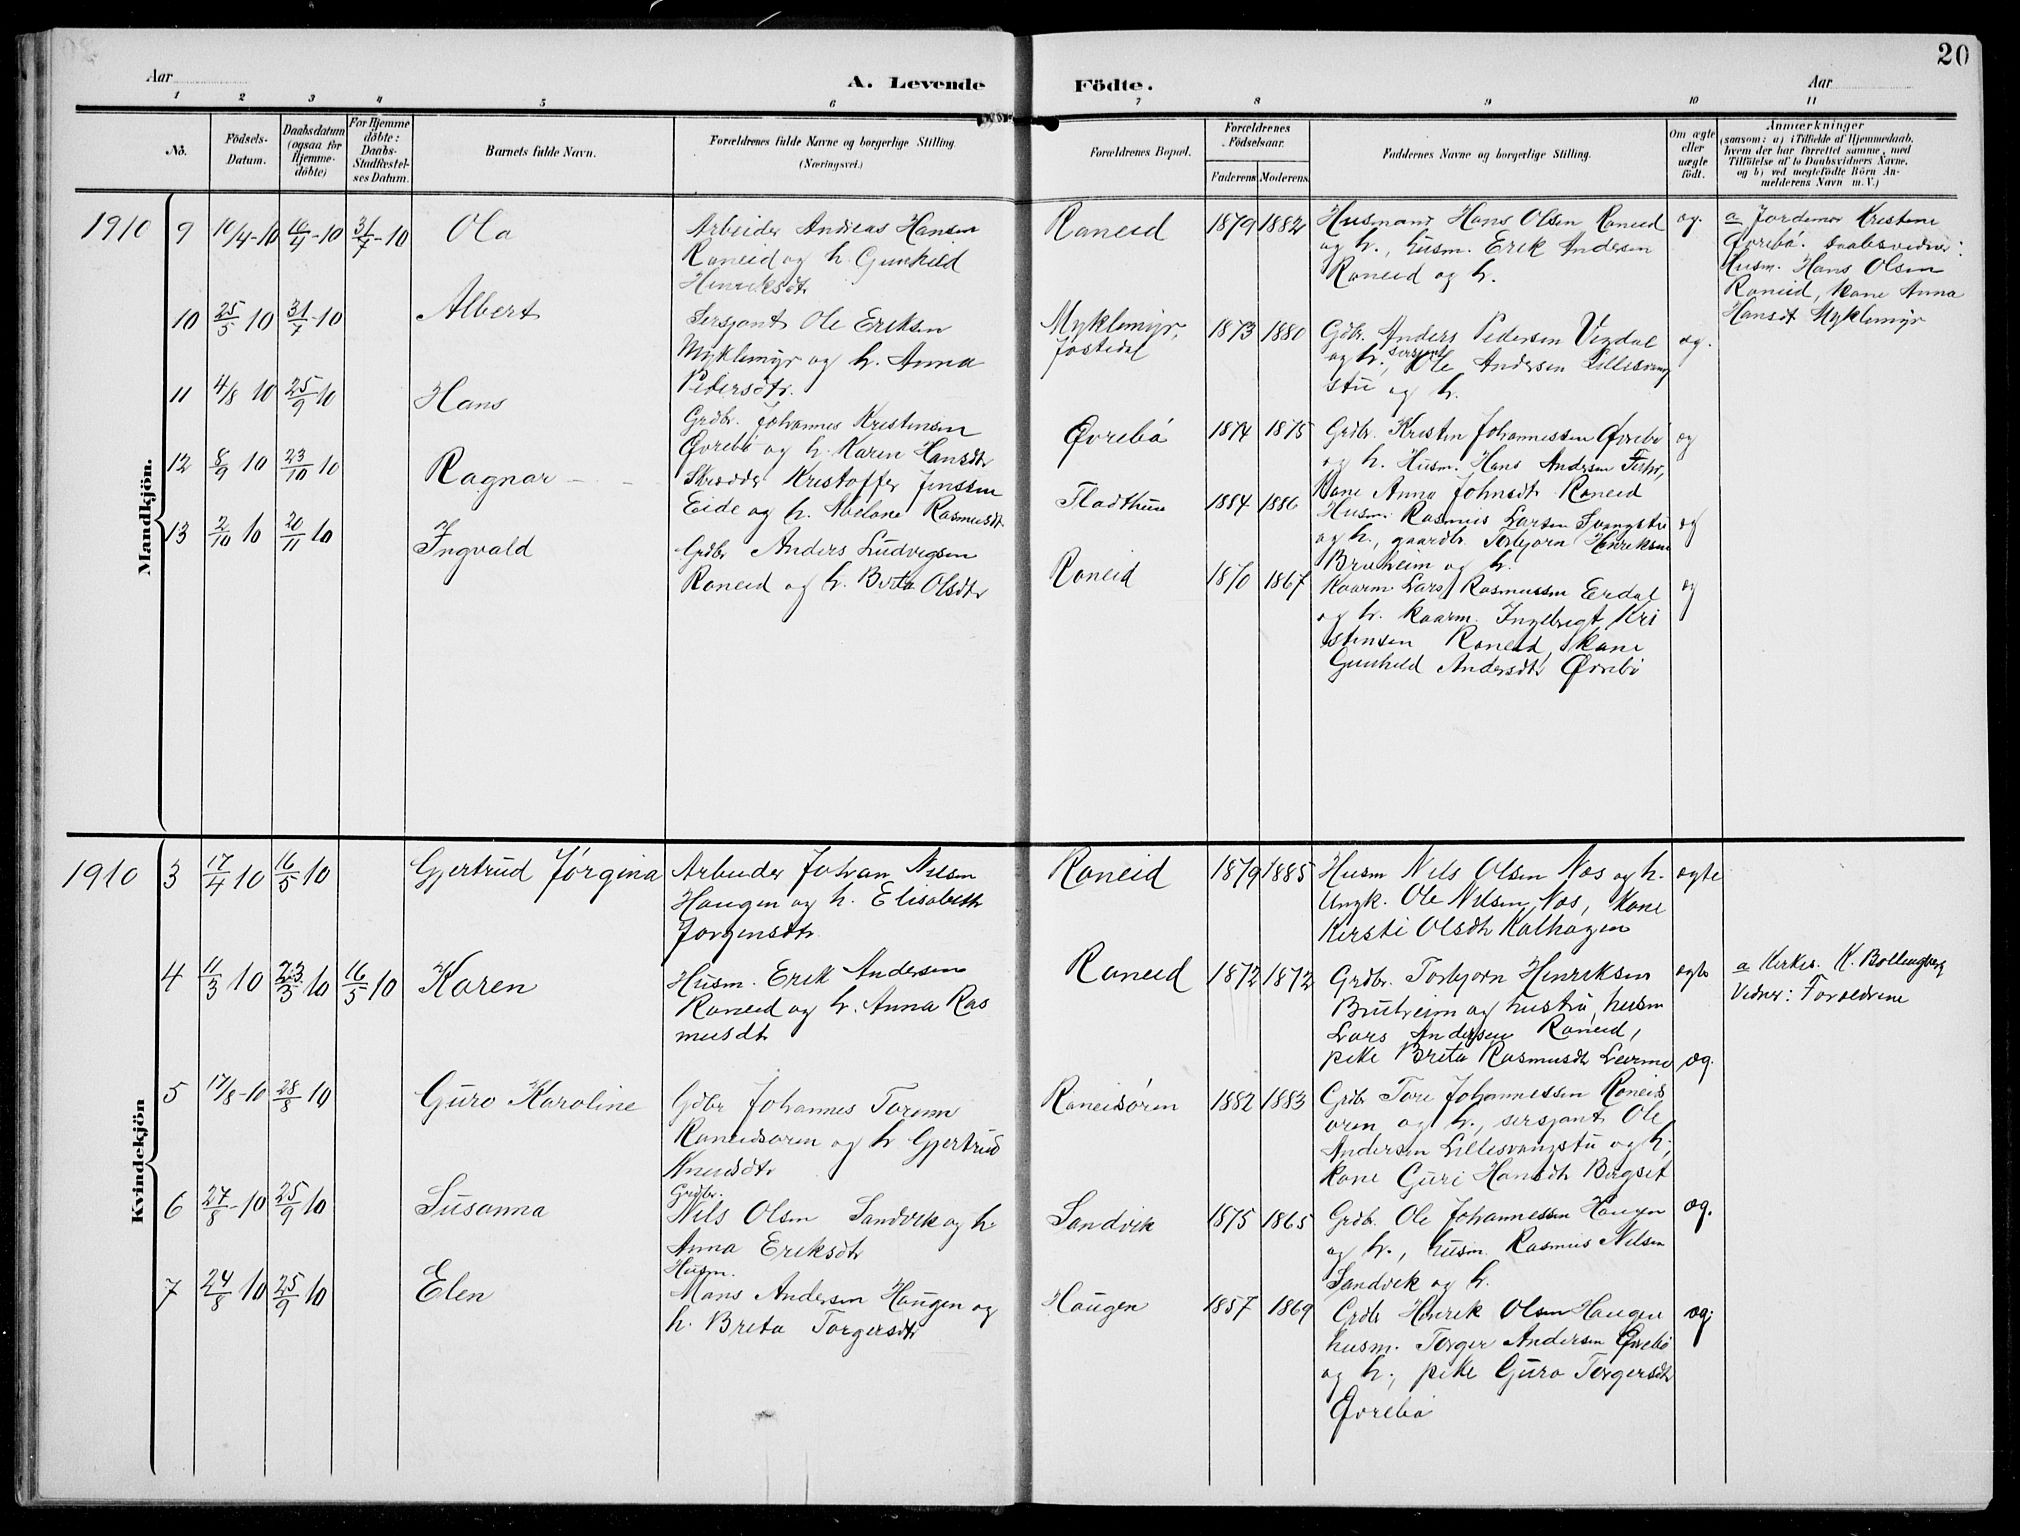 20
Aar
A. Levende
Födte.
Aar
1 2 3 4 5 6 7 8 9 10 11
Nö.
Födsels-
Datum.
Daabsdatum
(ogsaa for
Hjemme-
döbte)
For Hjemme
döbte:
Daabs-
Stadfæstel-
ses Datum.
Barnets fulde Navn.
Forældrenes fulde Navne og borgerlige Stilling
(Næringsvei.)
Forældrenes Bopæl.
Forældrenes
Födselsaar.
Faderens
Moderens
Faddernes Navne og borgerlige Stilling.
Om ægte
eller
uægte
födt.
Anmærkninger
(saasom: a) i Tilfælde af Hjemmedaab,
hvem der har forrettet samme, med
Tilföielse af to Daabsvidners Navne,
og b) ved uægtefödte Börn An-
melderens Navn m. V.)
Mandkjön.
1910 9 10/4-10 10/4-10 31/7-10 Ola
Arbeider Andreas Hansen
Raneid og h. Gunhild
Henriksdtr
Raneid 1879 1882
Husmand Hans Olsen Raneid
og h., husm. Erik Andersen
Raneid og h.
æg.
a Jordemor Kristine
Øvrebö. Daabsvidner:
Husm. Hans Olsen
Raneid, kone Anna
Hansdt Myklemyr
10 25/5 10 31/7-10 Albert
Sersjant Ole Eriksen
Myklemyr og h. Anna
Pedersdtr.
Myklemyr,
Jostedal
1873 1880
Gdbr. Anders Pedersen
og h., sersjant Ole Andersen Lillesvang
stu og h.
æg.
11 4/8 10 25/9 10 Hans
Grdbr. Johannes Kristensen
Øvrebö og h. Karen Hansdtr
Øvrebö 1874 1875
Grdbr. Kristen Johannessen Øvrebö
og h. Husm. Hans Andersen
Kone Anna Johnsdtr Raneid
æg
12 8/9 10 23/10 10 Ragnar
Skrædder Kristoffer Jenssen
Eide og h. Abelone Rasmusdt.
Fladthus 1884 1886
Husm. Rasmus Larsen Svangstu
og h., gaardbr. Torbjörn Henriksen
Bruheim og h.
æg
13 2/10 10 20/11 10 Ingvald
Grdbr Anders Ludvigsen
Raneid og h. Brita Olsdtr
Raneid 1870 1867
Kaarm Lars Rasmussen Erdal
og h. kaarm. Ingebrigt Kri
stensen Raneid, kone
Gunhild Andersdtr Øvrebö
æg
Kvindekjön
1910 3 17/4 10 16/5 10 Gjertrud Jörgina
Arbeider Johan Nilsen
Haugen og h. Elisabeth
Jørgensdtr.
Raneid 1879 1885
Husm Nils Olsen Næs og h.
Ungk. Ole Nilsen Næs, Kone
Kersti Olsdtr Kalhagen
ægte
4 11/3 10 23/3 10 16/5 10 Karen
Husm. Erik Andersen
Raneid og h. Anna Ras
musdt
Raneid 1872 1872
Grdbr. Torbjörn Henriksen
Bruheim og hustru, husm
Lars Andersen Raneid,
pike Brita Rasmusdt Leirmo
ægte
a Kirkes. K. Bollingberg
Vidner: Forældrene
5 17/8-10 28/8 10 Guro Karoline
Gdbr Johannes Toresen
Raneidsören og h Gjertrud
Knudsdtr
Raneidsören 1882 1883
Grdbr Tore Johannessen Raneids
ören og h., sersjant Ole
Andersen Lillesvangstu og h,
kone Guri Hansdt Bergset
æg.
6 27/8-10 25/9 10 Susanna
Grdbr.
Nils Olsen Sandvik og h
Anna Eriksdtr
Sandvik 1875 1865
Grdbr. Ole Johannessen Haugen
og h., husm. Rasmus Nilsen
Sandvik og h.
æg.
7 24/8 10 25/9 10 Elen
Husm.
Mons Andersen Haugen og
h. Brita Torgersdtr
Haugen 1857 1869
Grdbr Henrik Olsen Haugen
husm. Torger Andersen Øvrebö
og h., pike Guro Torgersdtr
Øvrebö
æg